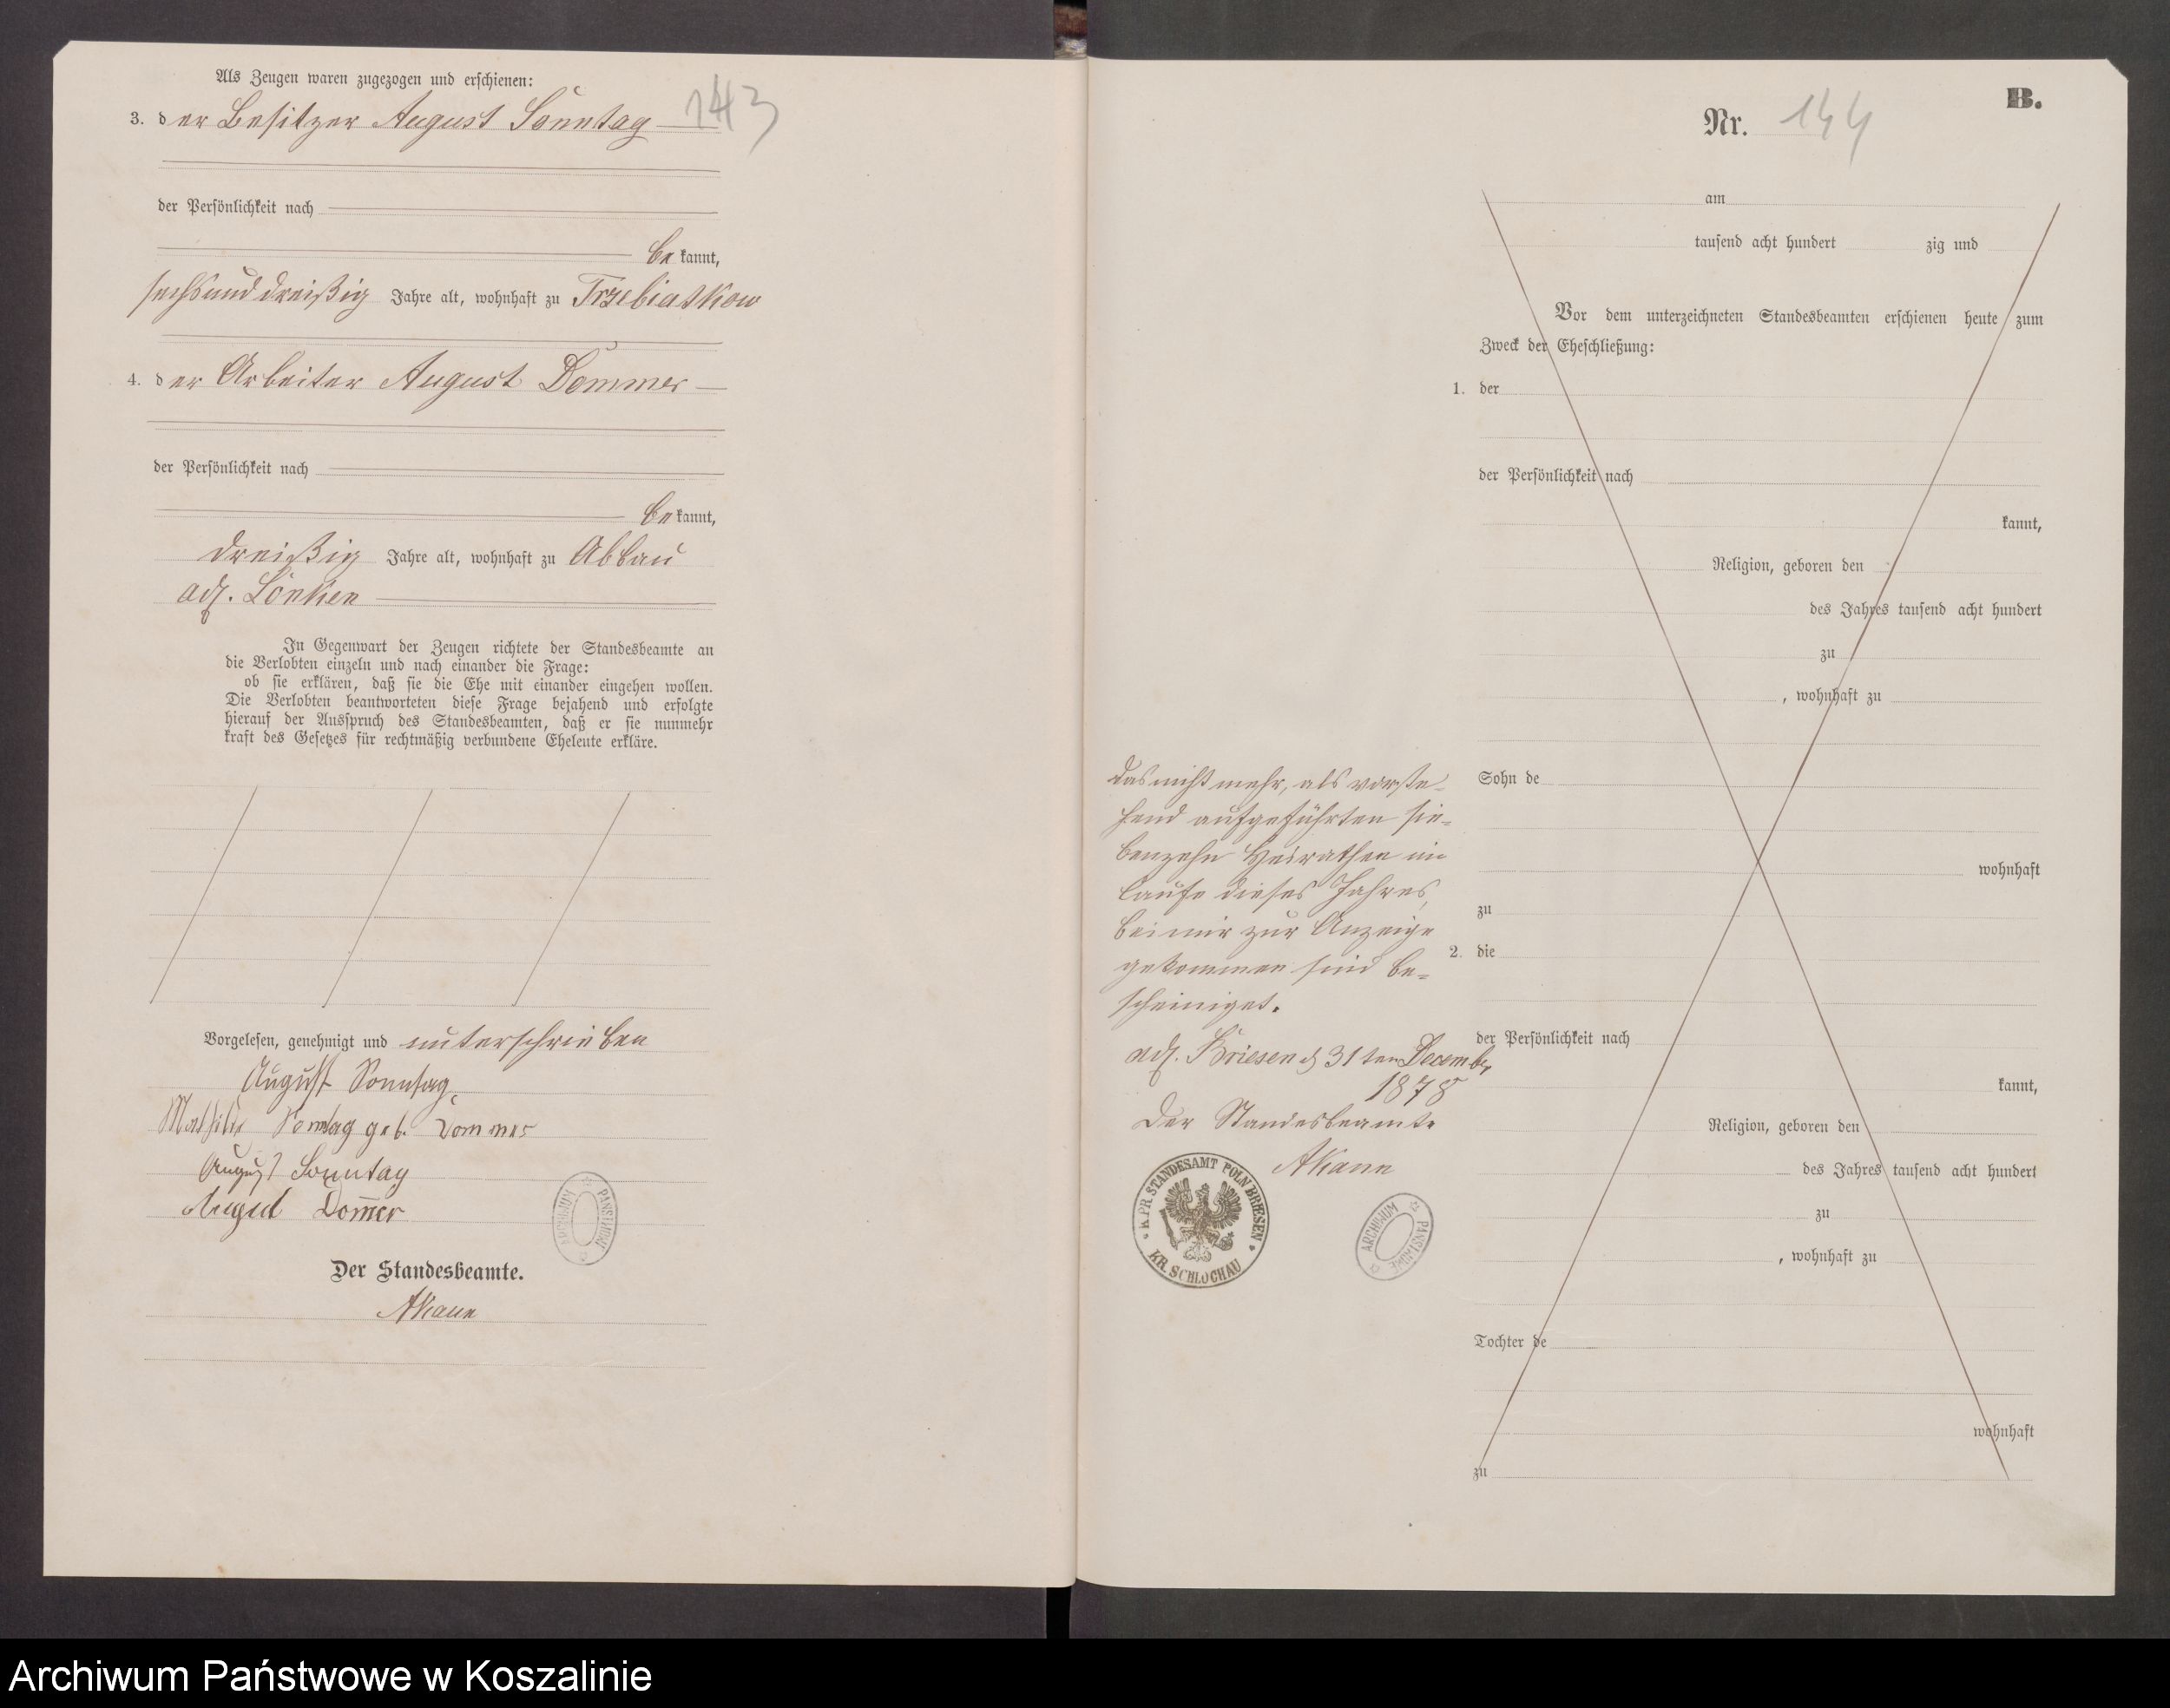 Als Zeugen waren zugezogen und erschienen:
3. der Besitzer August Sonntag
143
der Persönlichkeit nach
bekannt,
sechsunddreißig Jahre alt, wohnhaft zu Trzebiatkow
4. der Arbeiter August Dommer
der Persönlichkeit nach
bekannt,
dreißig Jahre alt, wohnhaft zu Abbau
adl. Lonken
In Gegenwart der Zeugen richtete der Standesbeamte an
die Verlobten einzeln und nach einander die Frage:
ob sie erklären, daß sie die Ehe mit einander eingehen wollen.
Die Verlobten beantworteten diese Frage bejahend und erfolgte
hierauf der Ausspruch des Standesbeamten, daß er sie nunmehr
kraft des Gesetzes für rechtmäßig verbundene Eheleute erkläre.
Vorgelesen, genehmigt und unterschrieben
August Sonntag
Mathilde Sonntag geb. Dommer
August Sonntag
August Dom̅er
ARCHIWUM PAŃSTWOWE
Der Standesbeamte.
AKann
B.
Nr. 144
am
tausend acht hundert zig und
Vor dem unterzeichneten Standesbeamten erschienen heute zum
Zweck der Eheschließung:
1. der
der Persönlichkeit nach
kannt,
Religion, geboren den
des Jahres tausend acht hundert
zu
, wohnhaft zu
Sohn de
wohnhaft
zu
2. die
der Persönlichkeit nach
kannt,
Religion, geboren den
des Jahres tausend acht hundert
zu
, wohnhaft zu
Tochter de
wohnhaft
zu
Das nicht mehr, als vorste-
hend aufgeführten sie-
benzehn Heirathen im
Laufe dieses Jahres,
bei mir zur Anzeige
gekommen sind be-
scheiniget.
adl. Briesen d 31ten Decembr
1878
Der Standesbeamte
AKann
K. PR. STANDESAMT POLN BRIESEN
KR. SCHLOCHAU
ARCHIWUM PAŃSTWOWE
Archiwum Państwowe w Koszalinie